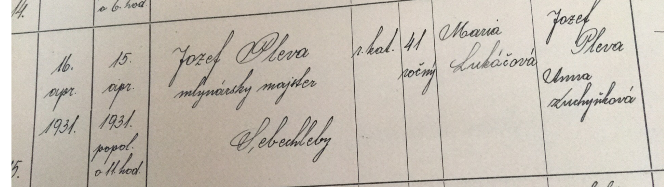 14.
o 6. hod
16.
apr.
1931.
15.
apr.
1931.
popol.
o 11. hod.
Jozef Pleva
mlynársky majster
Sebechleby
r. kat.
41
ročný
Maria
Lukáčová
Jozef
Pleva
Anna
Luchyňková
15.